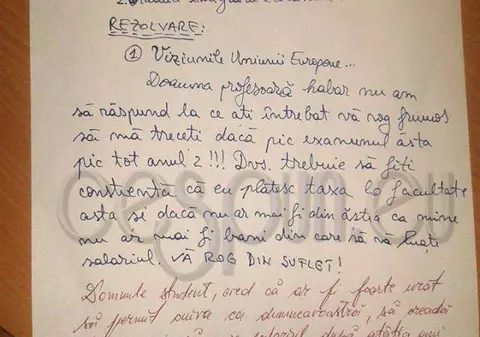 REZOLVARE:
① Viziunile Uniunii Europene...
Doamna profesoară habar nu am
să răspund la ce ati întrebat vă rog frumos
să mă treceti dacă pic examenul ăsta
pic tot anul 2 !!! Dvs. trebuie să fiti
constientă că eu plătesc taxa la facultate
asta si dacă nu ar mai fi din ăstia ca mine
nu ar mai fi bani din care să vă luati
salariul. VĂ ROG DIN SUFLET!
Domnule student, cred că ar fi foarte urât
să permit cuiva ca dumneavoastră, să creadă
salariul după atâtia ani
cespun.eu